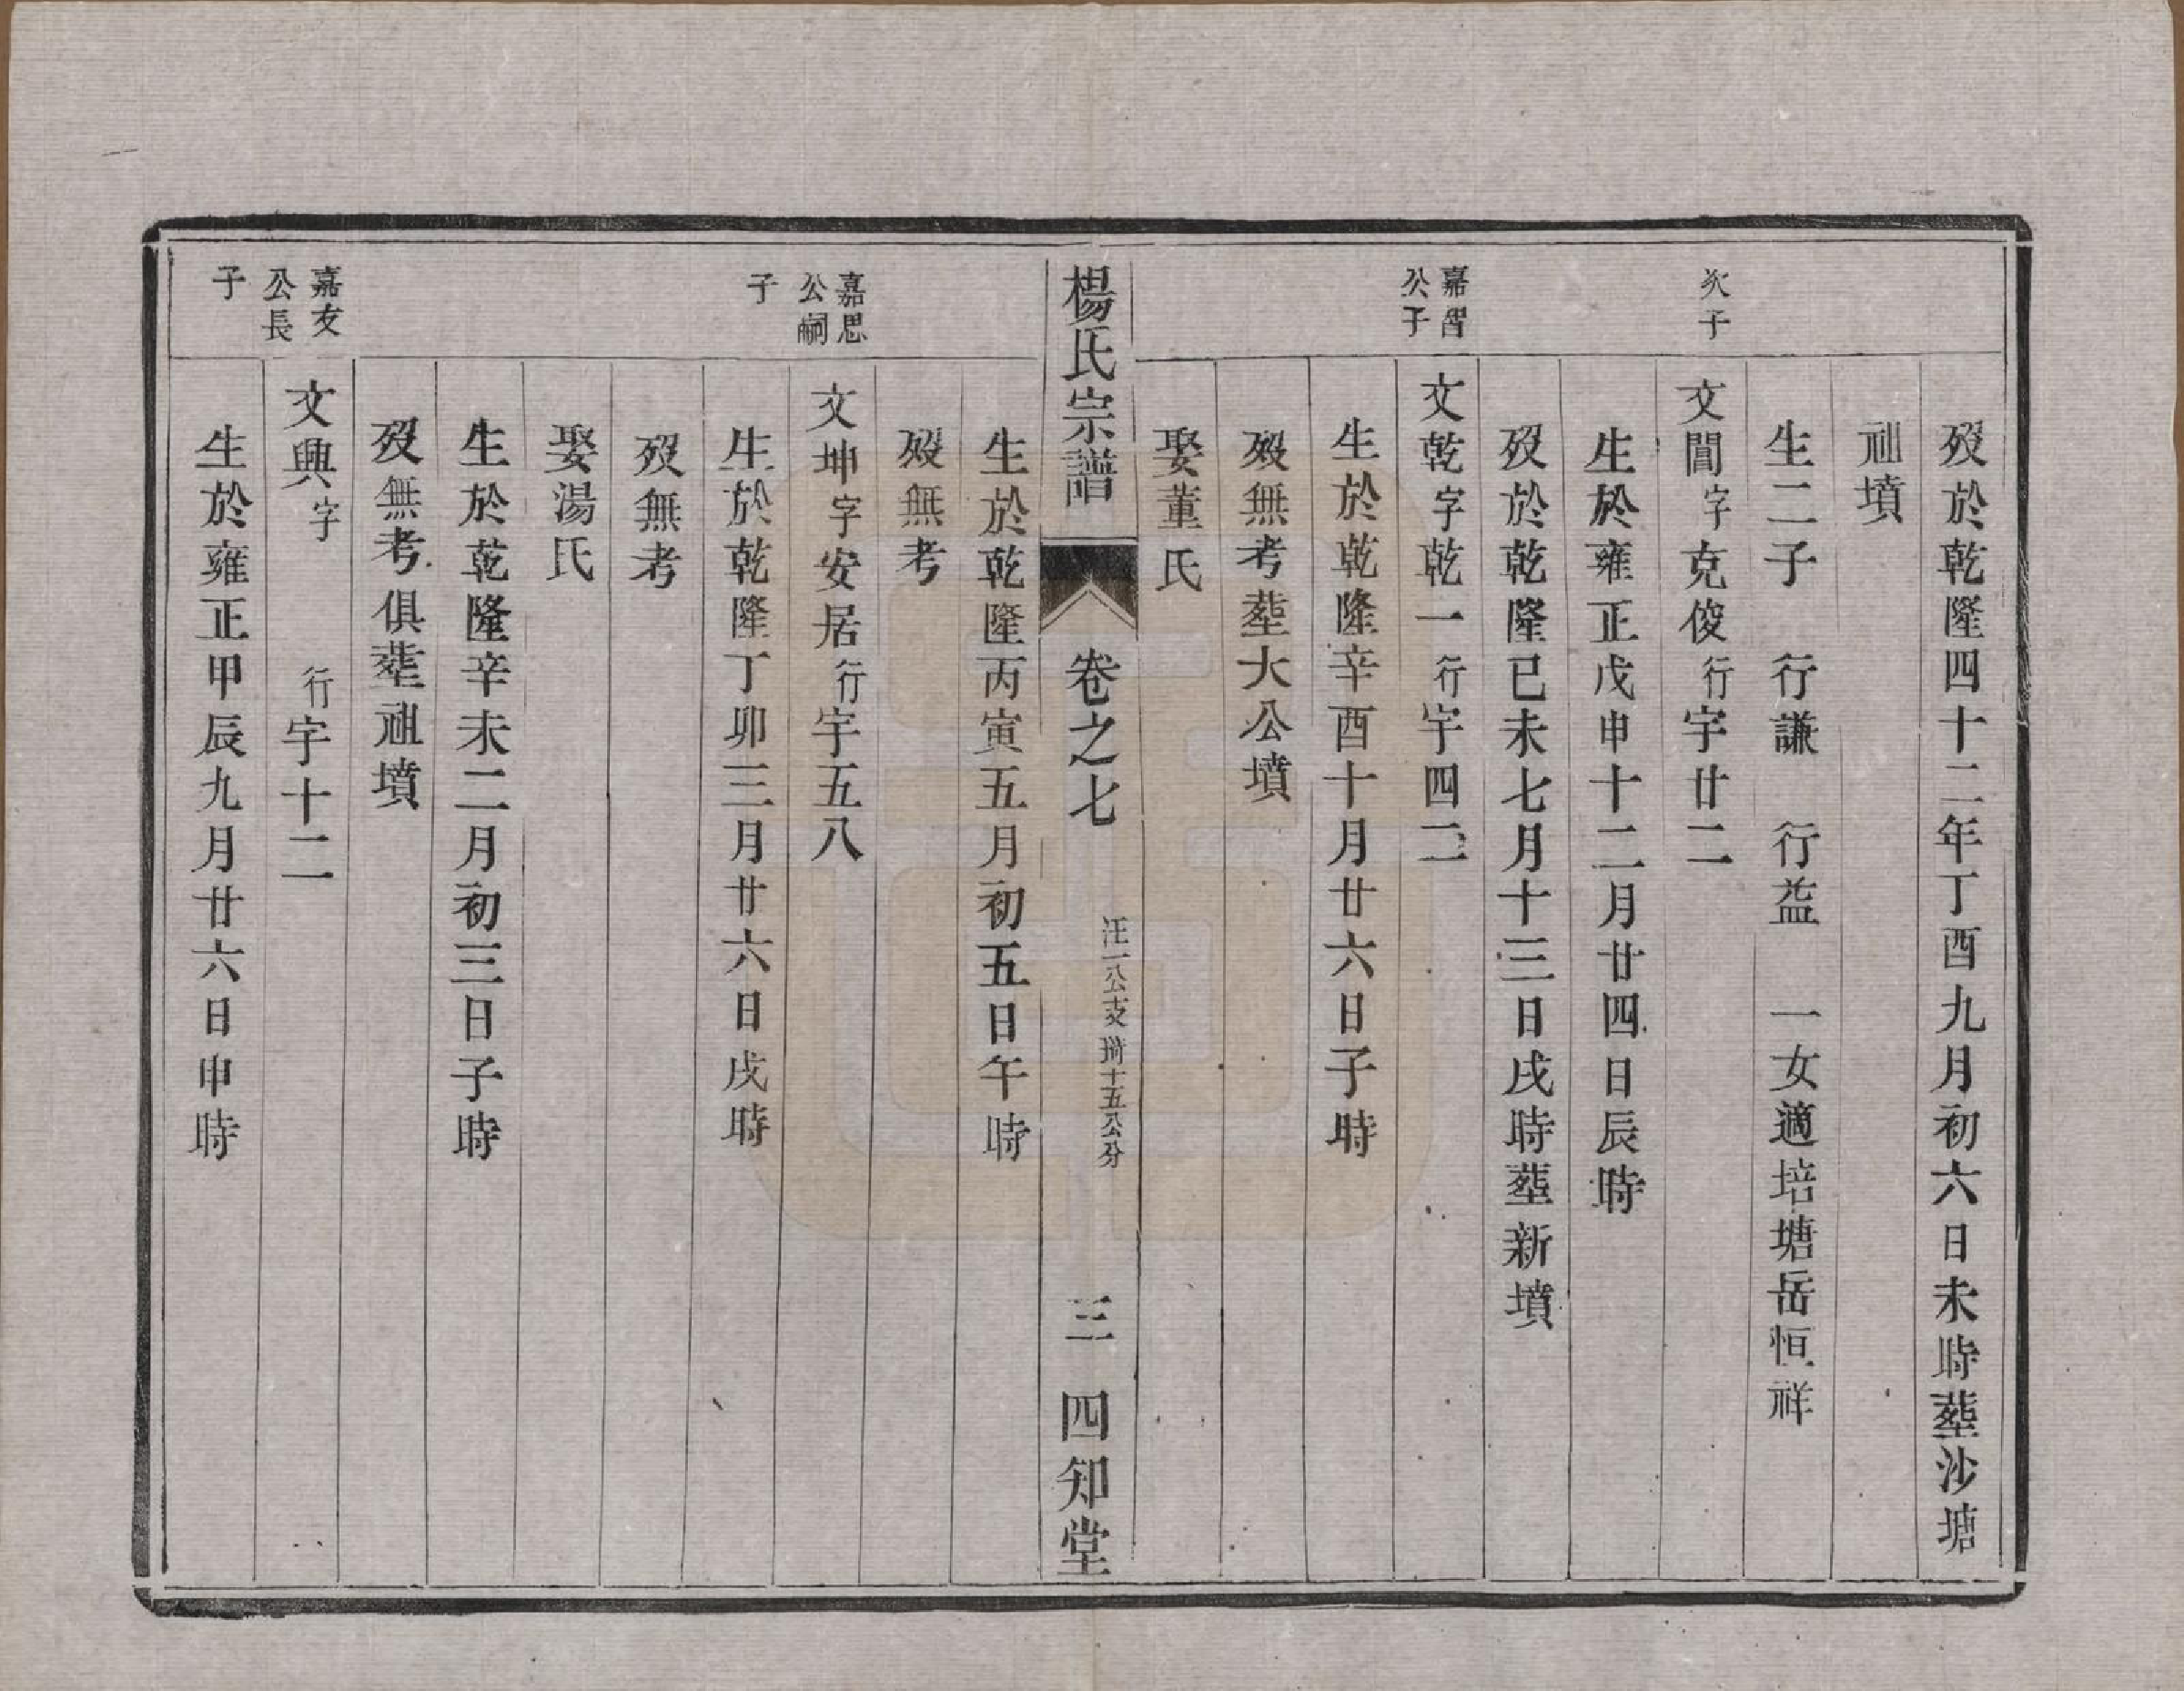 歿於乾隆四十二年丁酉九月初六日未時塟沙塘
祖墳
生二子　行謙　行益　一女適培塘岳恒祥
次子
文誾字克俊行宇廿二
生於雍正戊申十二月廿四日辰時
歿於乾隆已未七月十三日戌時塟新墳
嘉習
公子
文乾字乾一行宇四二
生於乾隆辛酉十月廿六日子時
歿無考塟大公墳
娶董氏
楊氏宗譜　卷之七　汪一公支　卅十五公分　三　四知堂
生於乾隆丙寅五月初五日午時
歿無考
嘉思
公嗣
子
文坤字安居行宇五八
生於乾隆丁卯三月廿六日戌時
歿無考
娶湯氏
生於乾隆辛未二月初三日子時
歿無考俱塟祖墳
嘉友
公長
子
文興字　行宇十二
生於雍正甲辰九月廿六日申時